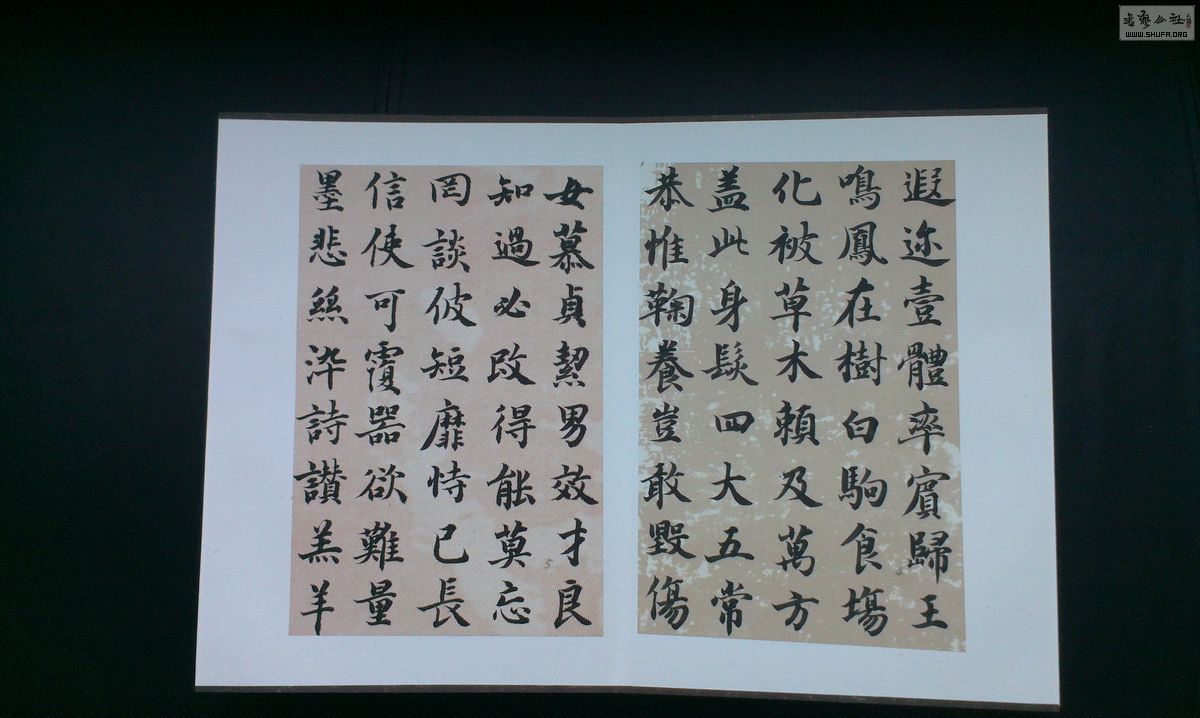 遐迩壹體率賓歸王
鳴鳳在樹白駒食場
化被草木賴及萬方
盖此身髮四大五常
恭惟鞠養豈敢毀傷
女慕貞絜男效才良
知過必改得能莫忘
罔談彼短靡恃己長
信使可覆器欲難量
墨悲絲染詩讃羔羊
書藝公社
WWW.SHUFA.ORG